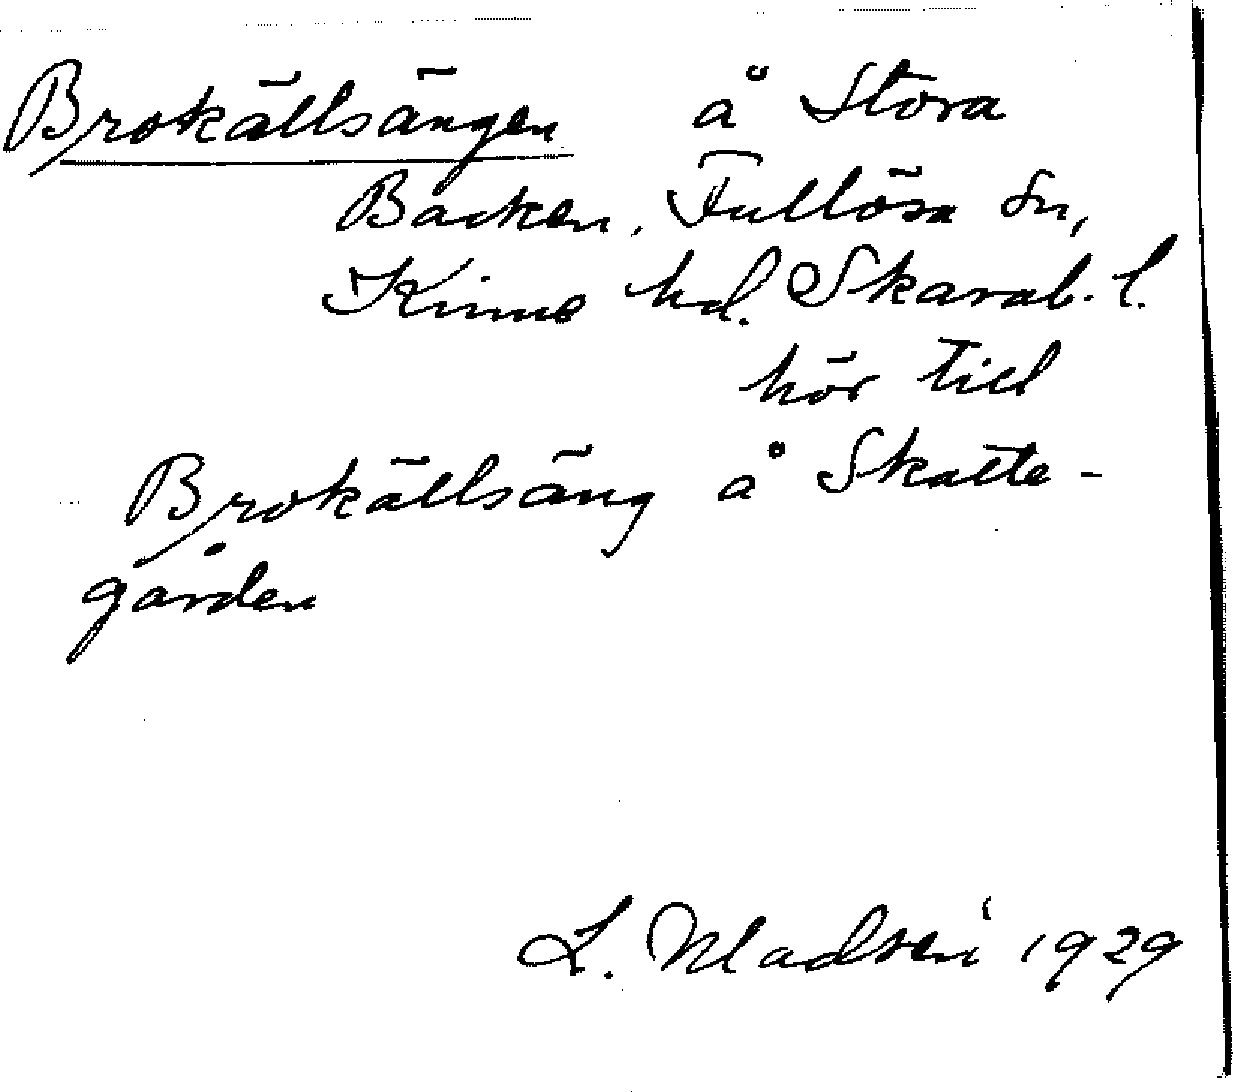 Brokällsängen å Stora
Backen, Fullösa sn,
Kinne hd. Skarab. l.
hör till
Brokällsäng å Skatte-
gården
L. Madsen 1929